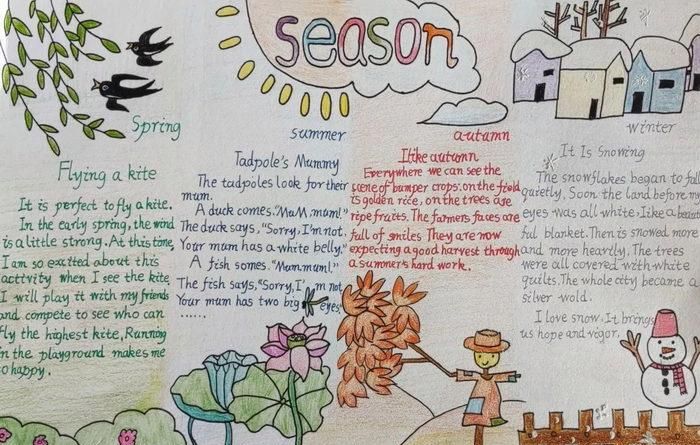 season
Spring
Flying a kite
It is perfect to fly a kite.
In the early spring, the wind
is a little strong. At this time,
I am so excited about this
activity when I see the kite
I will play it with my friends
and compete to see who can
fly the highest kite, Running
in the playground makes me
so happy.
summer
Tadpole's Mummy
The tadpoles look for their
mum.
A duck comes. "Mum, mum!"
The duck says, "Sorry, I'm not.
Your mum has a white belly."
A fish somes. "Mum, mum!"
The fish says, "Sorry, I'm not
Your mum has two big eyes,
......
autumn
I like autumn
Everywhere we can see the
scene of bumper crops: on the field
is golden rice, on the trees are
ripe fruits. The farmers faces are
full of smiles They are now
expecting a good harvest through
a summer's hard work.
winter
It Is Snowing
The snowflakes began to fall
quietly. Soon the land before my
eyes was all white. Like a beauti
ful blanket. Then is snowed more
and more heartly. The trees
were all covered with white
quilts. The whole city became a
silver wold.
I love snow. It brings
us hope and vigor.